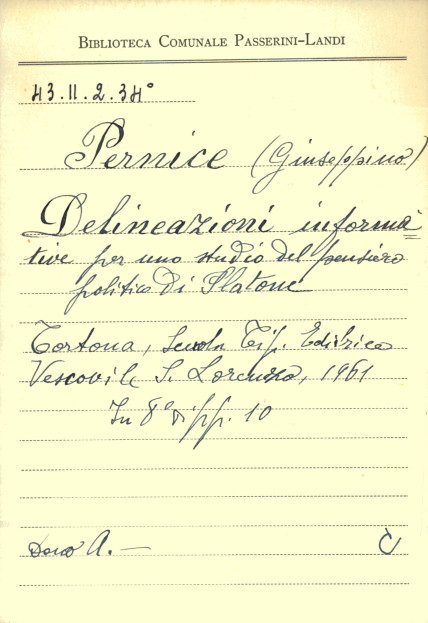 BIBLIOTECA COMUNALE PASSERINI-LANDI
43.II.2.34°
Pernice (Giuseppino)
Delineazioni informa=
tive per uno studio del pensiero
politico di Platone
Tortona, Scuola Tip. Editrice
Vescovile S. Lorenzo, 1961
In 8° di pp. 10
Dono A. —